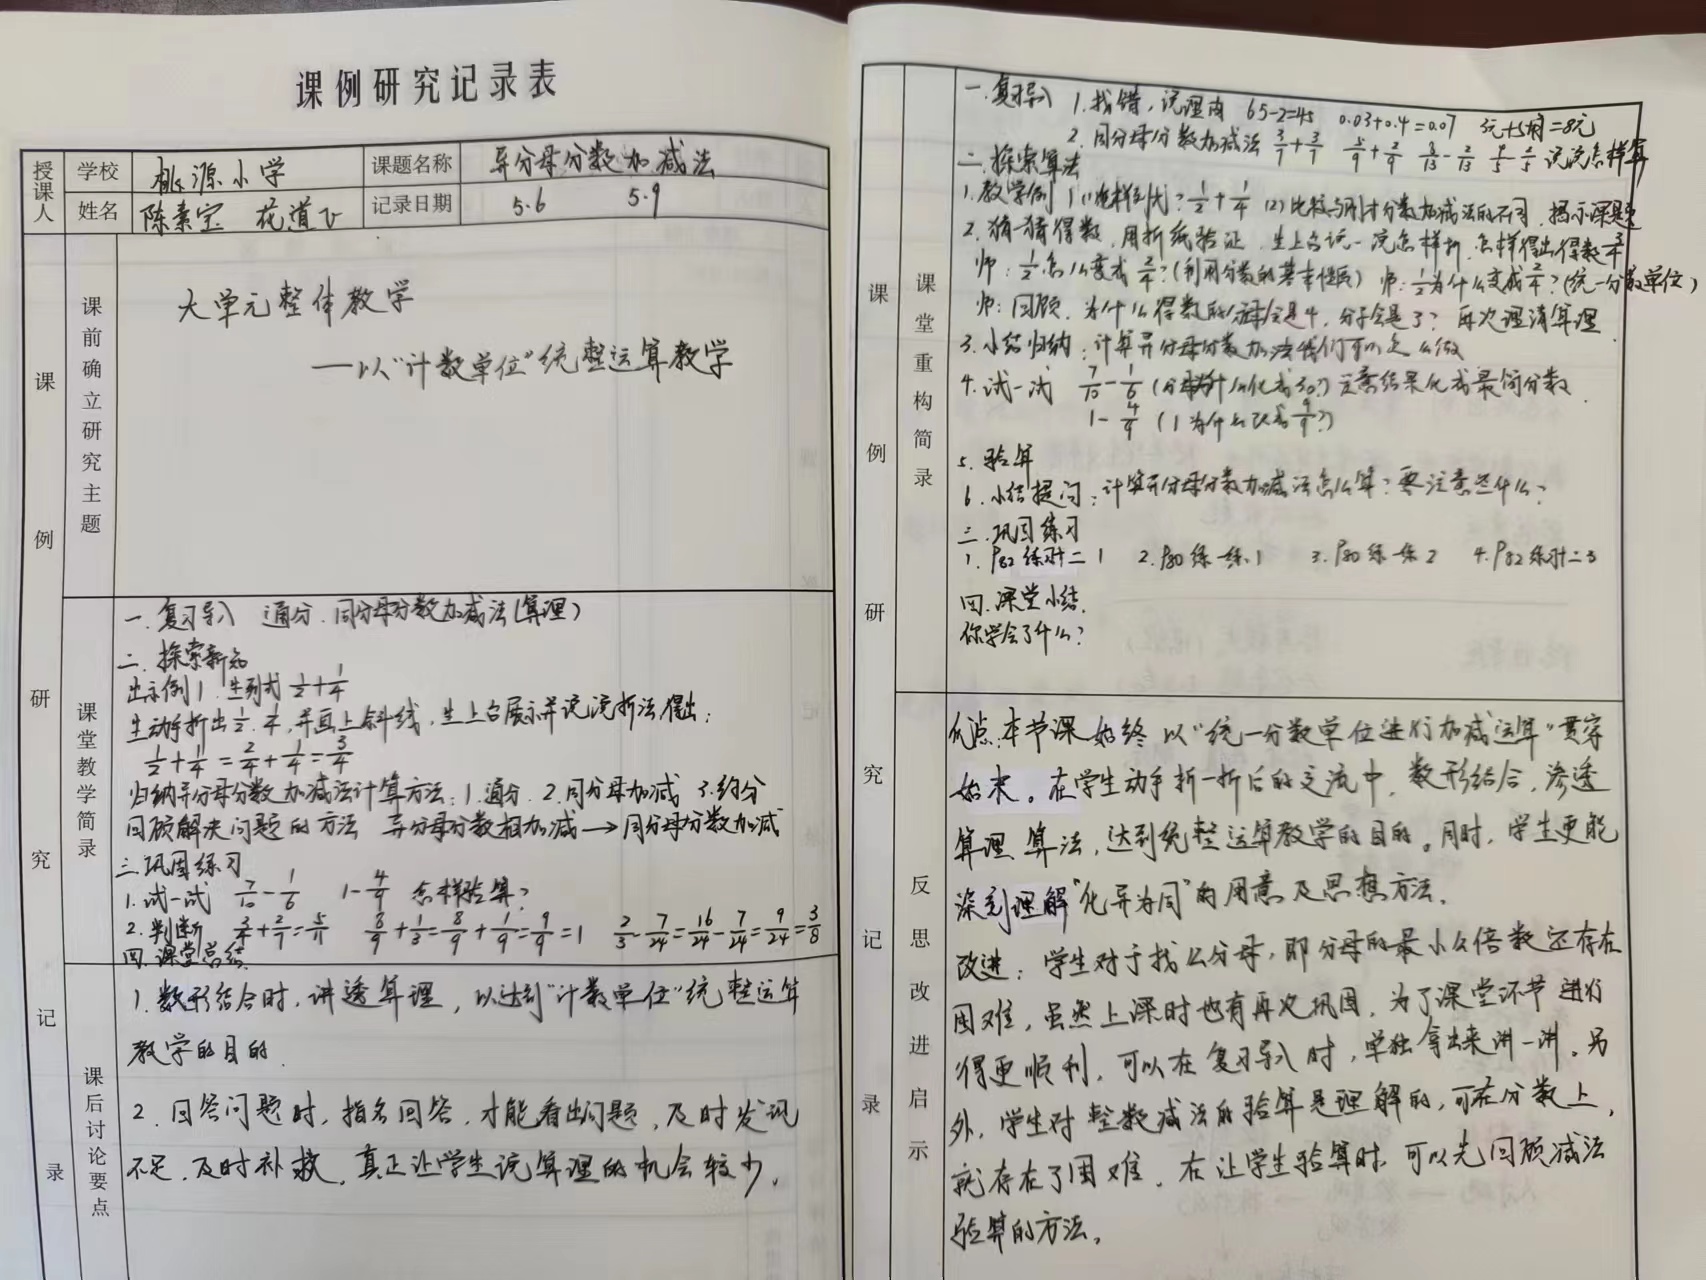 课例研究记录表
授课人 学校 桃源小学 课题名称 异分母分数加减法
姓名 陈素宝 花道 记录日期 5.6 5.9
课例研究记录
课前确立研究主题
大单元整体教学
——以“计数单位”统整运算教学
课堂教学简录
一.复习导入 通分.同分母分数加减法(算理)
二.探索新知
出示例1.生列式 1/2+1/4
生动手折出1/2.1/4,并画上斜线,生上台展示并说说折法得出:
1/2+1/4=2/4+1/4=3/4
归纳异分母分数加减法计算方法:1.通分.2.同分母加减 3.约分
回顾解决问题的方法 异分母分数相加减→同分母分数加减
三.巩固练习
1.试一试 7/10-1/6 1-4/9 怎样验算?
2.判断 3/4+2/7=5/11 8/9+1/3=8/9+1/9=9/9=1 2/3-7/24=16/24-7/24=9/24=3/8
四.课堂总结.
课后讨论要点
1.数形结合时,讲透算理,以达到“计数单位”统整运算
教学的目的.
2.回答问题时,指名回答,才能看出问题,及时发现
不足,及时补救,真正让学生说算理的机会较少.
课例研究记录
课堂重构简录
一.复习导入 1.找错,说理由 65-2=45 0.03+0.4=0.07 3元+5角=8元
2.同分母分数加减法 3/7+3/7 5/9+2/9 8/13-2/13 说说怎样算
二.探索算法
1.教学例1 (1)怎样列式?1/2+1/4 (2)比较与同分母分数加减法的不同,揭示课题
2.猜一猜得数,用折纸验证,生上台说一说怎样折,怎样得出得数3/4
师:1/2怎么变成2/4?(利用分数的基本性质) 师:1/2为什么变成2/4?(统一分数单位)
师:回顾,为什么得数的分母会是4,分子会是3?再次理清算理
3.小结归纳:计算异分母分数加法我们可以怎么做
4.试一试 7/10-1/6 (分母为什么化成30?)注意结果化成最简分数.
1-4/9 (1为什么改成9/9?)
5.验算
6.小结提问:计算异分母分数加减法怎么算?要注意些什么?
三.巩固练习
1.P82练习十二 1 2.P80练一练1 3.P80练一练2 4.P82练习十二3
四.课堂小结.
你学会了什么?
反思改进启示
优点:本节课始终以“统一分数单位进行加减运算”贯穿
始末。在学生动手折一折后的交流中,数形结合,渗透
算理、算法,达到统整运算教学的目的。同时,学生更能
深刻理解“化异为同”的用意及思想方法.
改进:学生对于找公分母,即分母的最小公倍数还存在
困难,虽然上课时也有再次巩固,为了课堂环节进行
得更顺利,可以在复习导入时,单独拿出来讲一讲。另
外,学生对整数减法的验算是理解的,可在分数上,
就存在了困难,在让学生验算时,可以先回顾减法
验算的方法。